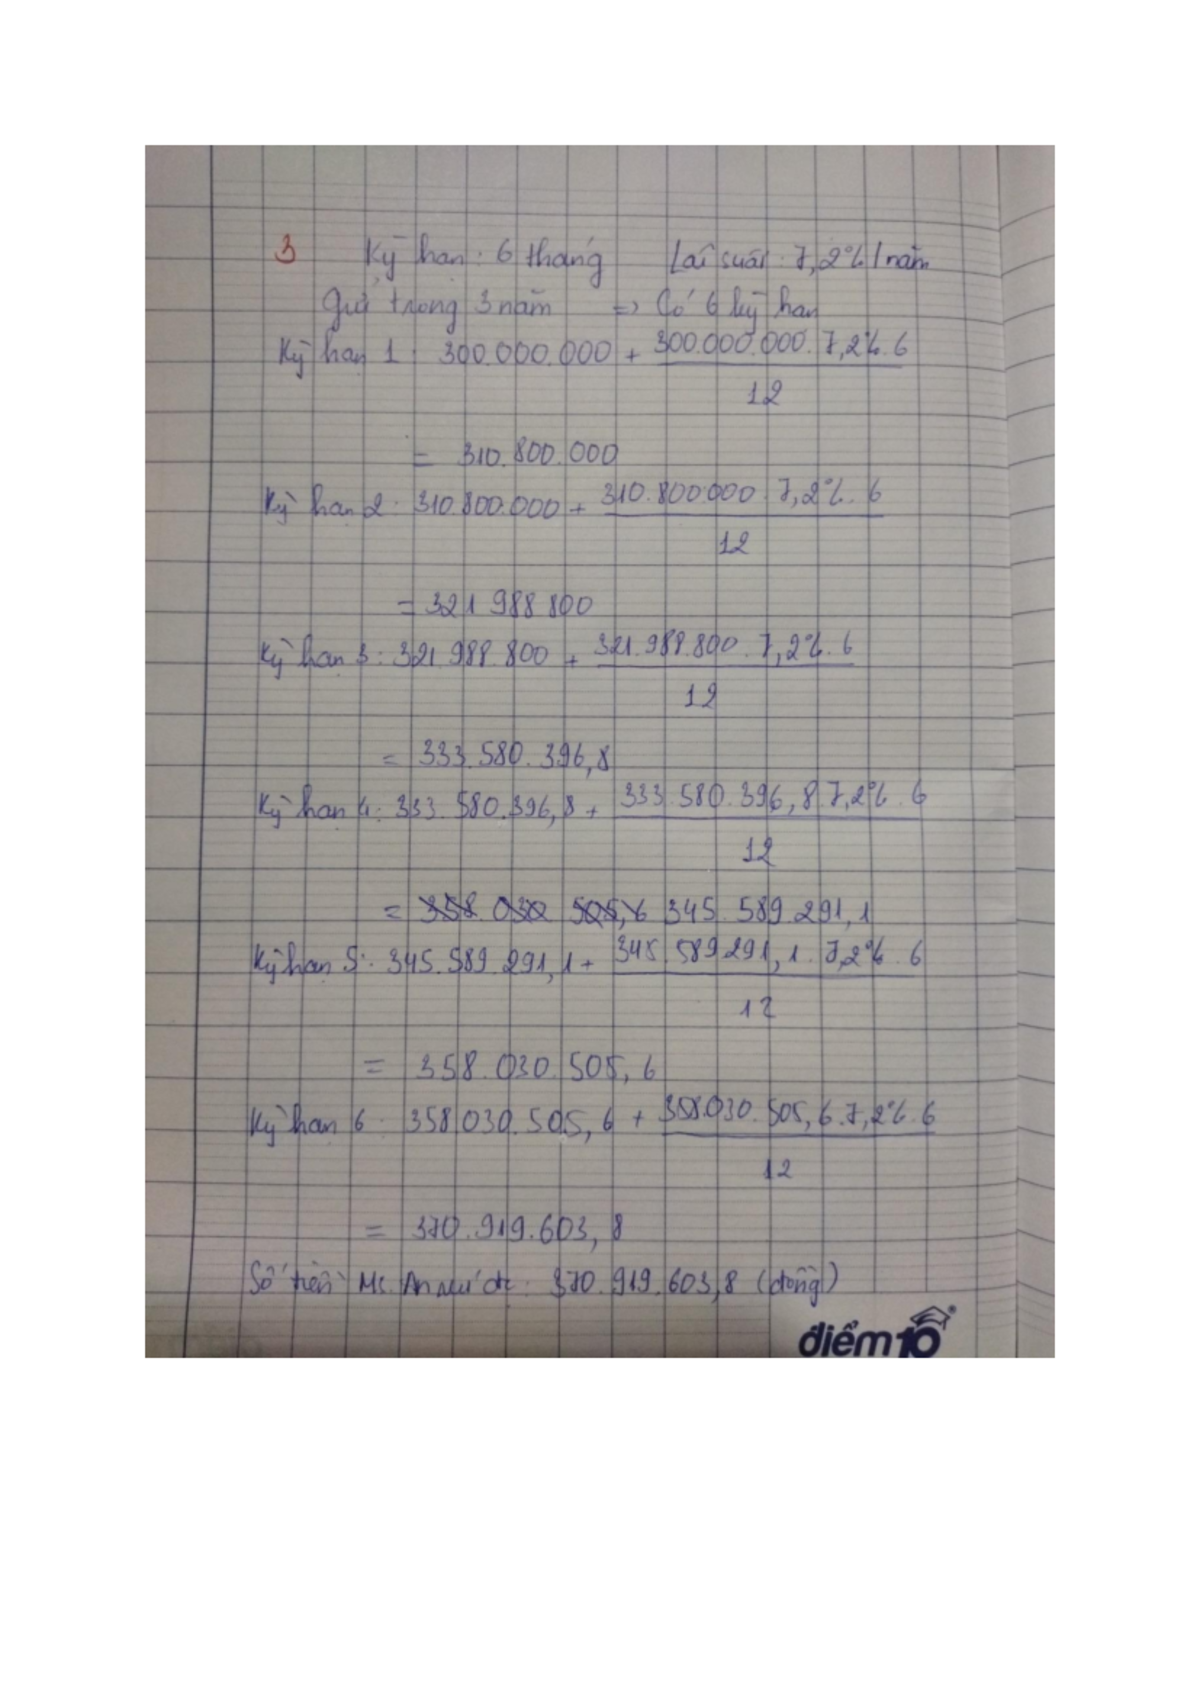 3 Kỳ hạn: 6 tháng Lãi suất: 7,2%/năm
Gửi trong 3 năm => Có 6 kỳ hạn
Kỳ hạn 1: 300.000.000 + 300.000.000. 7,2%. 6
12
= 310.800.000
Kỳ hạn 2: 310.800.000 + 310.800.000 7,2%. 6
12
= 321 988 800
Kỳ hạn 3: 321.988.800 + 321.988.800. 7,2%. 6
12
= 333.580.396,8
Kỳ hạn 4: 333.580.396,8 + 333.580.396,8.7,2%.6
12
= 358.030 505,6 345.589.291,1
Kỳ hạn 5: 345.589.291,1 + 345.589291,1. 7,2%.6
12
= 358.030.505,6
Kỳ hạn 6: 358.030.505,6 + 358.030.505,6.7,2%.6
12
= 370.919.603,8
Số tiền Ms. An đc: 370.919.603,8 (đồng)
điểm10